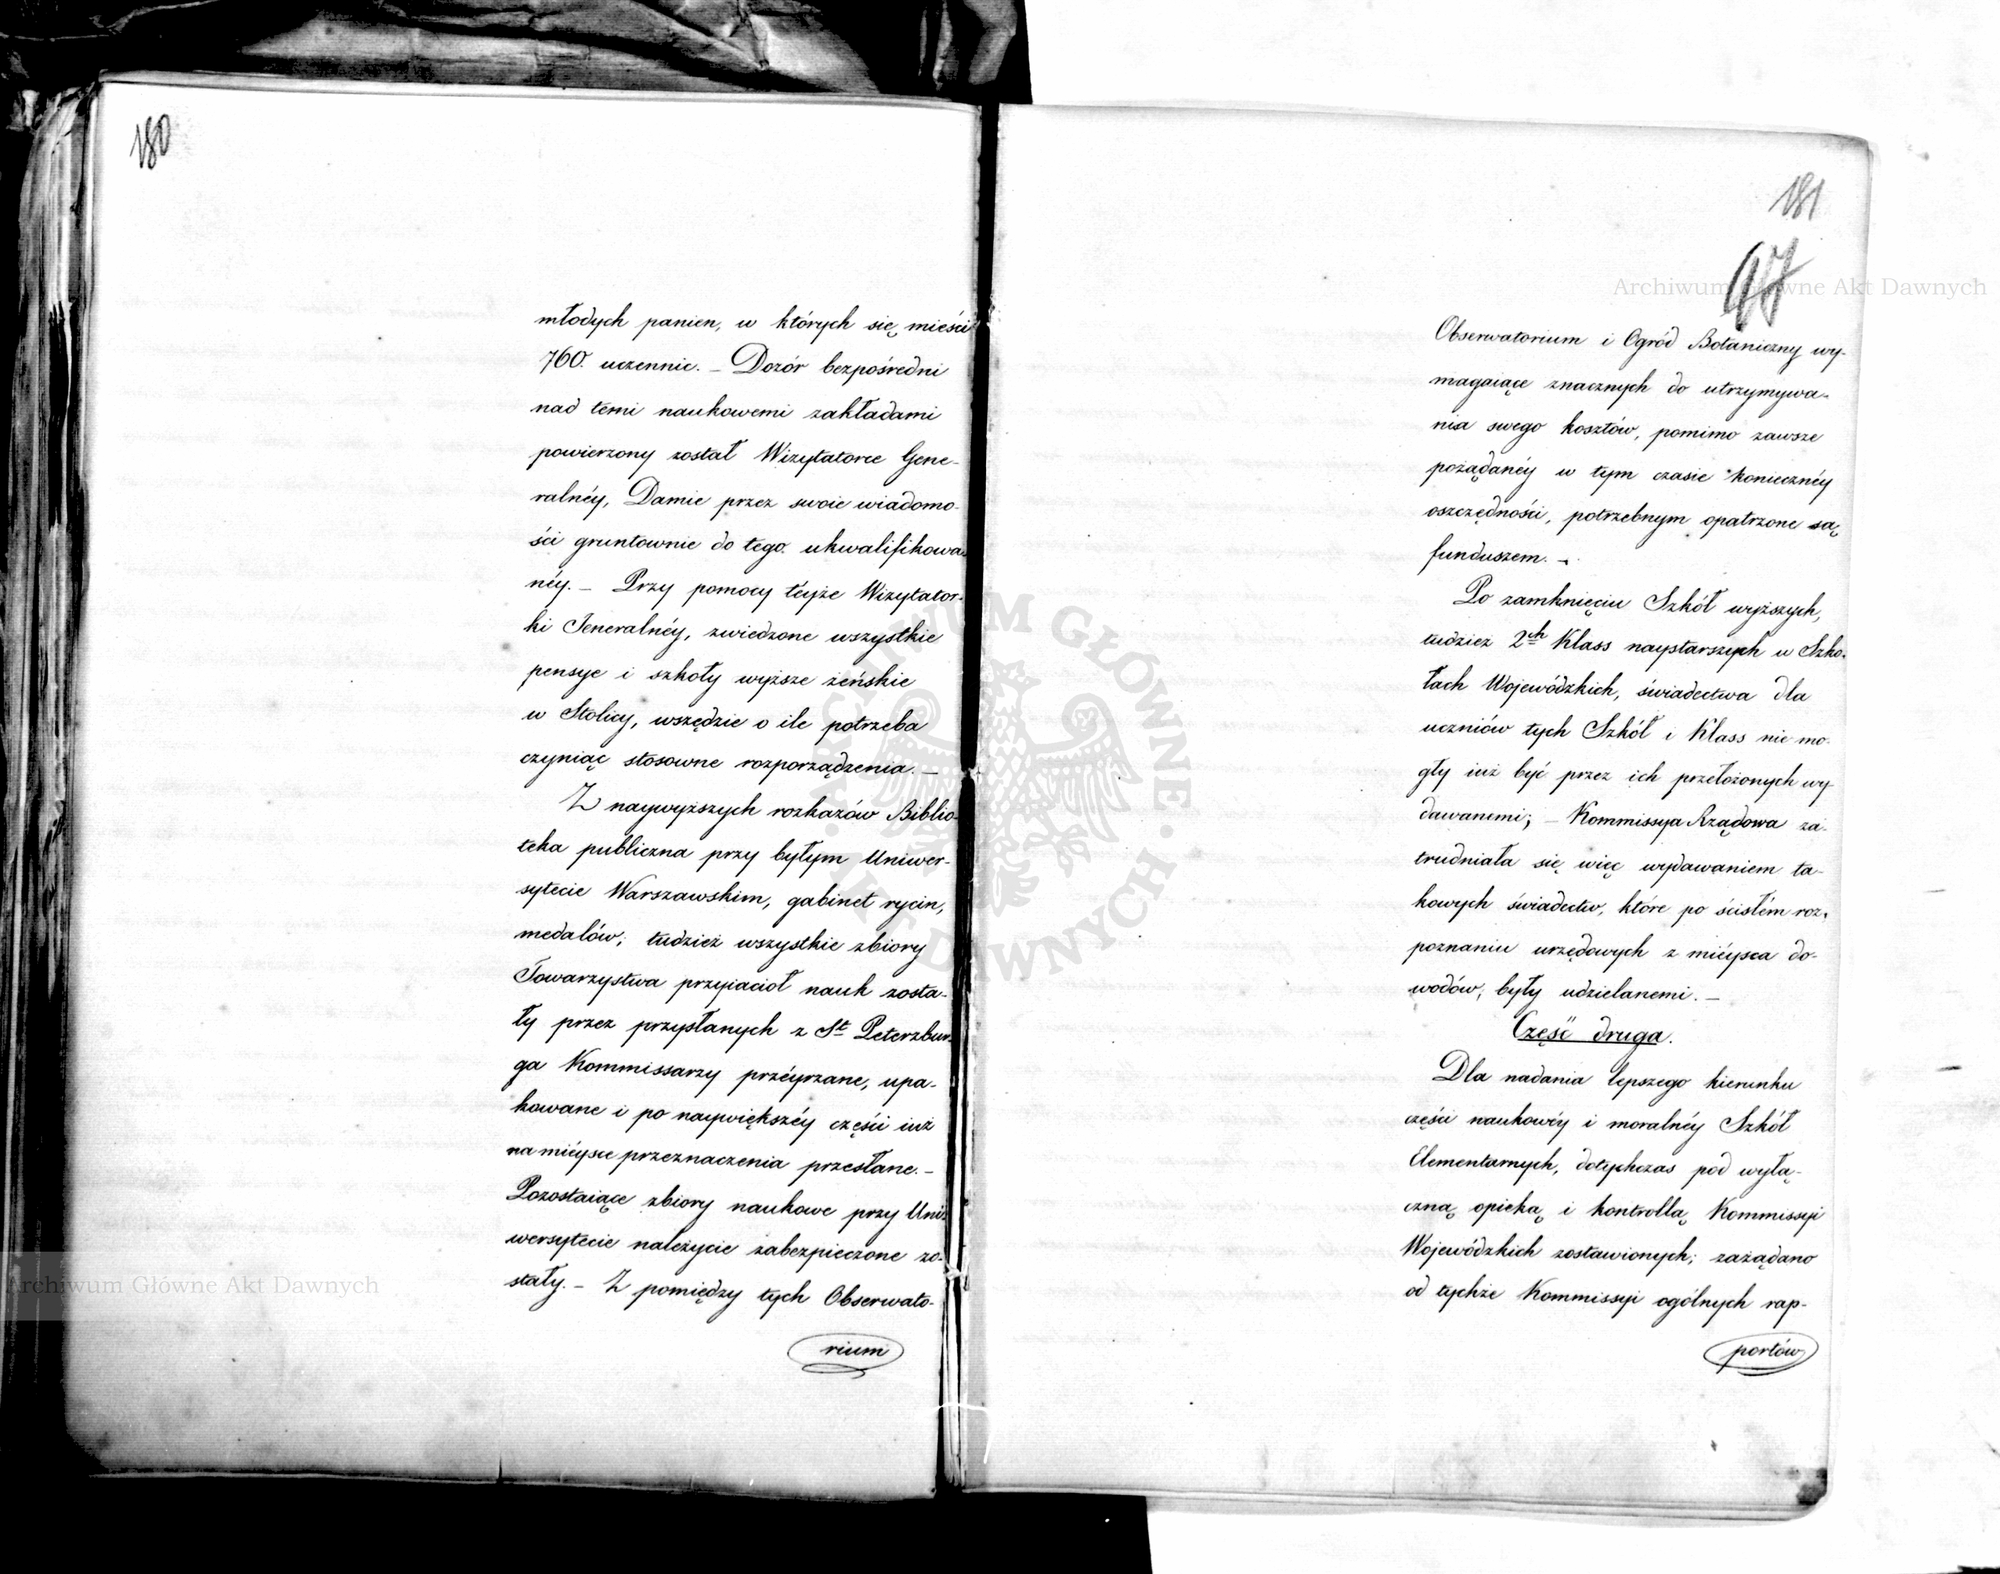 180
młodych panien, w których się mieści
760. uczennic. – Dozór bezpośredni
nad temi naukowemi zakładami
powierzony został Wizytatorce Gene-
ralnéy, Damie przez swoie wiadomo-
ści gruntownie do tego ukwalifikowa-
néy. – Przy pomocy téyże Wizytator-
ki Jeneralnéy, zwiedzone wszystkie
pensye i szkoły wyższe żeńskie
w Stolicy, wszędzie o ile potrzeba
czyniąc stosowne rozporządzenia. –
Z naywyższych rozkazów Biblio-
teka publiczna przy byłym Uniwer-
sytecie Warszawskim, gabinet rycin,
medalów; tudzież wszystkie zbiory
Towarzystwa przyiaciół nauk zosta-
ły przez przysłanych z St Peterzbur-
ga Kommissarzy przéyrzane, upa-
kowane i po naywiększéy części iuż
na miéysce przeznaczenia przesłane. –
Pozostaiące zbiory naukowe przy Uni-
wersytecie należycie zabezpieczone zo-
stały. – Z pomiędzy tych Obserwato-
rium
181
97
Obserwatorium i Ogród Botaniczny wy-
magaiące znacznych do utrzymywa-
nia swego kosztów, pomimo zawsze
pożądanéy w tym czasie koniecznéy
oszczędności, potrzebnym opatrzone są
funduszem. –
Po zamknięciu Szkół wyższych,
tudzież 2ch Klass naystarszych w Szko-
łach Wojewódzkich, świadectwa dla
uczniów tych Szkół i Klass nie mo-
gły iuż być przez ich przełożonych wy-
dawanemi; – Kommissya Rządowa za-
trudniała się więc wydawaniem ta-
kowych świadectw, które po ścisłém roz-
poznaniu urzędowych z miéysca do-
wodów, były udzielanemi. –
Część druga.
Dla nadania lepszego kierunku
części naukowéy i moralnéy Szkół
Elementarnych, dotychczas pod wyłą-
czną opieką i kontrollą Kommissyi
Wojewódzkich zostawionych; zażądano
od tychże Kommissyi ogólnych rap-
portów
Archiwum Główne Akt Dawnych
Archiwum Główne Akt Dawnych
ARCHIWUM GŁÓWNE · AKT DAWNYCH ·